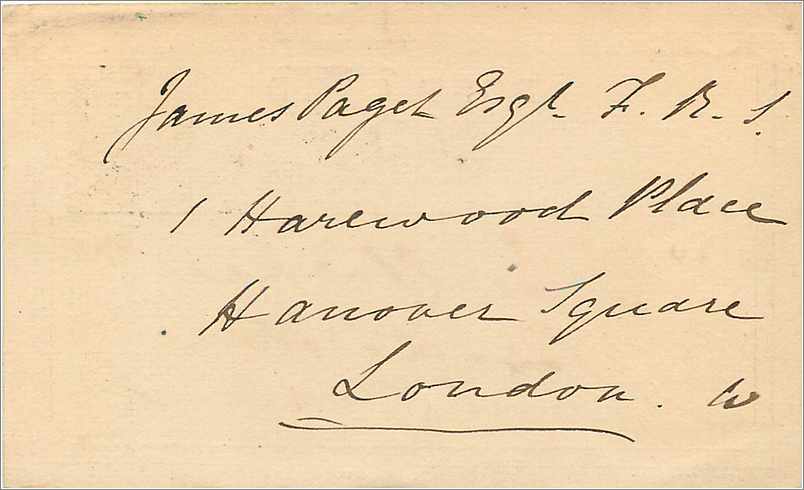 James Paget Esqr. F. R. S.
1 Harewood Place
Hanover Square
London. W